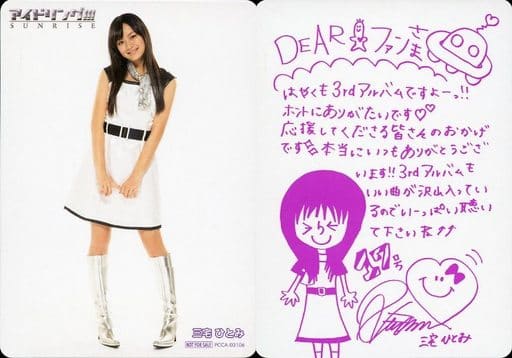 アイドリング!!!
SUNRISE
三宅 ひとみ
NOT FOR SALE PCCA-03106
DEAR ファンさま
はやくも3rdアルバムですよーっ!!
ホントにありがたいです♡♡
応援してくださる皆さんのおかげ
です 本当にいつもありがとうござ
います!! 3rdアルバムも
いい曲が沢山入ってい
るのでいーっぱい聴い
て下さいね
号
三宅ひとみ